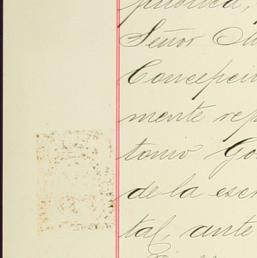 pública,
Señor
Concepción
mente rep
tonio Go
de la escr
tal, ante